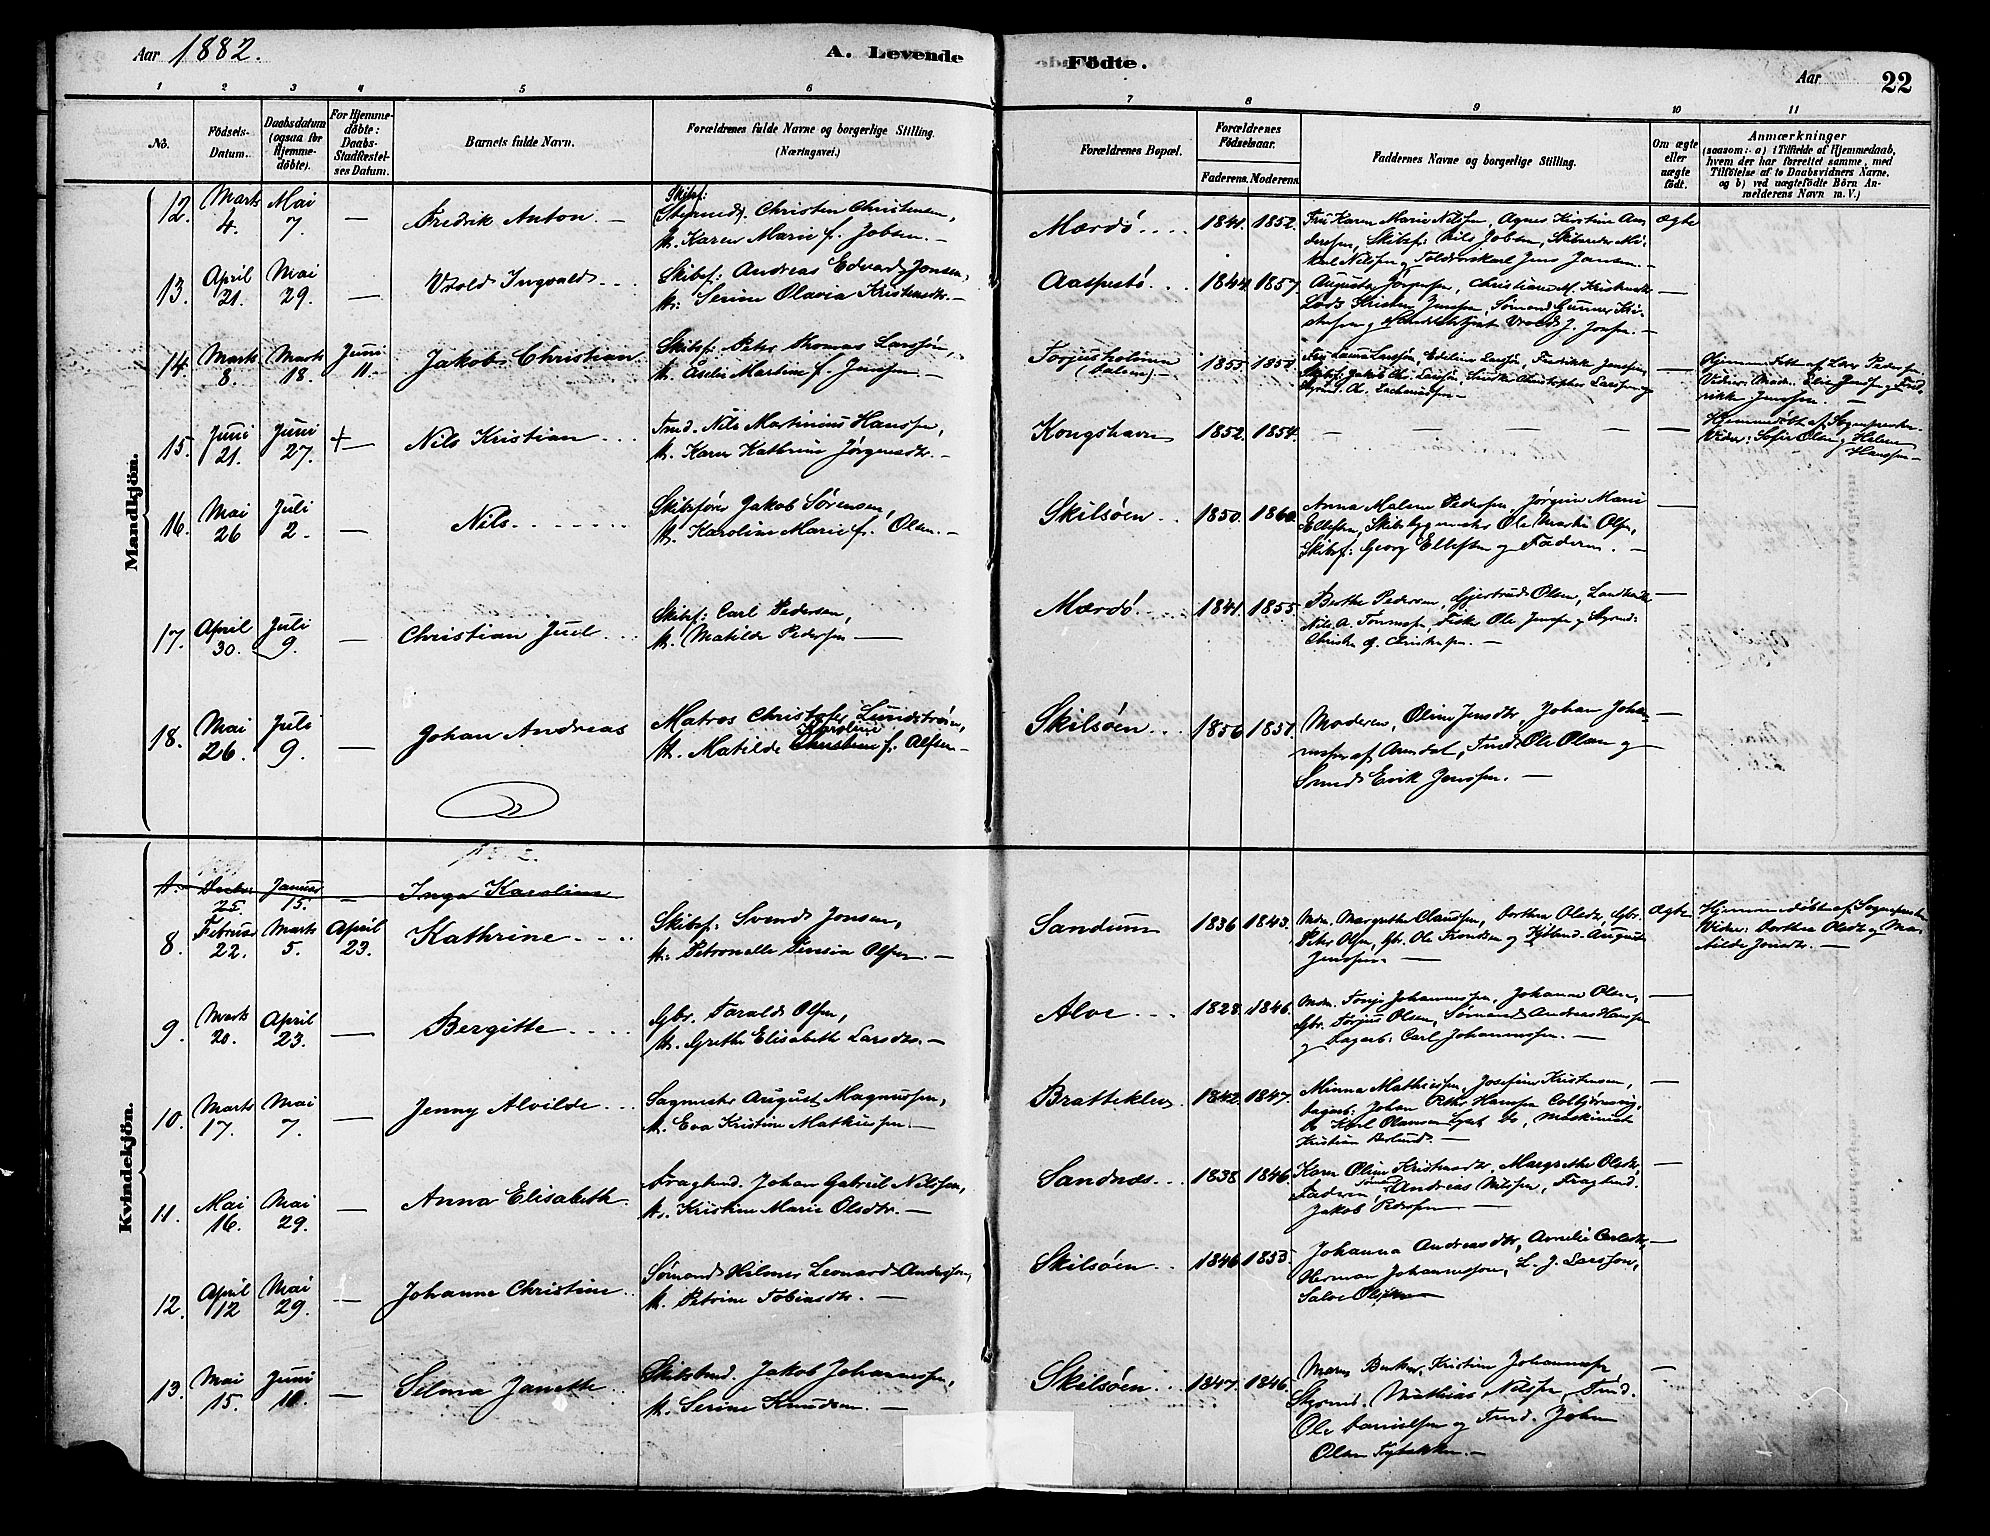 Aar 1882.
A. Levende
Födte.
Aar
22
1 2 3 4 5 6 7 8 9 10 11
No.
Födsels-Datum.
Daabsdatum (ogsaa for Hjemme-döbte).
For Hjemme-döbte: Daabs-Stadfæstel-ses Datum.
Barnets fulde Navn.
Forældrenes fulde Navne og borgerlige Stilling.
(Næringsvei.)
Forældrenes Bopæl.
Forældrenes Födselsaar.
Faderens. Moderens.
Faddernes Navne og borgerlige Stilling.
Om ægte eller uægte födt.
Anmærkninger
(saasom: a) i Tilfælde af Hjemmedaab, hvem der har forrettet samme, med Tilföielse af to Daabsvidners Navne, og b) ved uægtefödte Börn An-melderens Navn m. V.)
Mandkjön.
12. Marts 4. Mai 7. — Fredrik Anton. —
Skibsf:
Christen Christensen,
H. Karen Marie f. Jobsen. —
Mærdö.... 1841. 1852.
Fru Karen Marie Nilsen, Agnes Kirstine An-
dersen, Skibsf: Nils Jobsen,
Nilsen og Toldopsykarl Jens Jansen. —
ægte
13. April 21. Mai 29. — Vrold Ingvald...
Skibsf: Andreas Edvard Jonsen,
H. Serine Olavia Kristensdtr. —
Aaspestö... 1844. 1857.
Augusta Jörgensen, Christiane M. Kristensdtr
Lods Kristen Jensen, Sömand Gunner Kri-
stensen og Vrold J. Jonsen. —
—
14. Marts 8. Marts 18. Juni 11. Jakob Christian
Skibsf: Peter Thomas Larssön,
H. Martine f. Jensen. —
Torjusholmen 1855. 1857.
Fru Laura Larssön, Edeline Larssön, Fredrikke Jensen,
Skibsf: Jakob Chr. Larssön, Christopher Larssen og
Zachariasen —
—
Hjemmedöbt af Lars Pedersen
Vidner: Madm. Elise Jensen og Fred-
rikke Jensen. —
15. Juni 21. Juni 27. + — Nils Kristian...
Tmd. Nils Martinius Hansen,
H. Karen Kathrine Jörgensdtr. —
Kongshavn 1852. 1854.
— — — — — —
Hjemmedöbt af Sognepresten.
Vidner: Sofie Olsen og Helene
Hansen —
16. Mai 26 Juli 2. — Nils.......
Skibsförer Jakob Sörensen,
H. Karoline Marie f. Olsen. —
Skilsöen.. 1850. 1860.
Anna Malene Pedersen, Jörgine Marie
Ellefsen, Skibsbygmester Ole Martin Olsen,
Skibsf: Georg Ellefsen og Faderen. —
—
17. April 30. Juli 9. — Christian Juel...
Skibsf: Carl Pedersen,
H. Matilde Pedersen —
Mærdö.... 1841. 1855.
Berthe Pedersen, Gjertrud Olsen, Landhandler
Nils A. Tönnesen, Fisker Ole Jensen og Styrmd:
Christen G. Christensen. —
—
18. Mai 26. Juli 9. — Johan Andreas
Matros Christofer Lundström,
Karoline
H. Matilde Christine f. Olsen —
Skilsöen... 1856 1857.
Moderen, Oline Jensdtr, Johan Johan-
nesen af Arendal, Tmd. Ole Olsen og
Smed Erik Jensen. —
—
Kvindekjön.
1. Decbr 25. Januar 15. — Inga Karoline
8. Februar 22. Marts 5. April 23. Kathrine....
Skibsf: Svend Jonsen,
H: Petronelle Olsen. —
Sandum 1836 1843.
Mdm. Margrethe Olausen, Dorthea Olsdtr, Gbr.
Peter Olsen, Gbr. Ole Knudsen og August
Jensen. —
ægte
Hjemmedöbt af Sognepresten
Vidner: Dorthea Olsdtr og Ma-
tilde Jonsdtr. —
9. Marts 20. April 23. — Bergitte....
Gbr. Tarald Olsen,
H. Grethe Elisabeth Larsdtr. —
Alve... 1828. 1846.
Mdm. Tonje Johannessen, Johanne Olsen,
Gbr. Torjus Olsen, Sömand Andreas Hansen
og Dagarb. Carl Johannessen. —
—
10. Marts 17. Mai 7. — Jenny Alvilde...
Sagmester August Magnussen,
H. Eva Kristine Mathiesen. —
Bratteklev. 1842. 1847.
Minna Mathiesen, Josefine Kristensen,
Dagarb: Johan Peter Hansen Colbjörnsvig,
Do Karl Olausen do, Maskinist
Kristian Berlund. —
—
11. Mai 16. Mai 29. — Anna Elisabeth.
Johan Gabriel Nilsen,
H. Kristine Marie Olsdtr. —
Sandnes... 1838 1846.
Karen Oline Kristensdtr, Margrethe Olsdtr,
Faderen, Sömand Andreas Nilsen,
Jakob Pedersen —
—
12. April 12 Mai 29. — Johanne Christine.
Sömand Hilmer Leonard Andersen,
H. Petrine Tobiasdtr. —
Skilsöen.. 1846. 1853.
Johanna Andreasdtr, Amelie Carlsdtr,
Herman Johannessen, L. J. Larsson,
Salve Olsen —
—
13. Mai 15. Juni 10. — Selma Janette..
Skibstmd. Jakob Johannessen,
H. Serine Knudsen. —
Skilsöen... 1847. 1846.
Maren Berthea, Kristine Johannesen
Styrmd. Mathias Nilsen, Tmd.
Ole Danielsen og Tmd. John
Olsen —
—